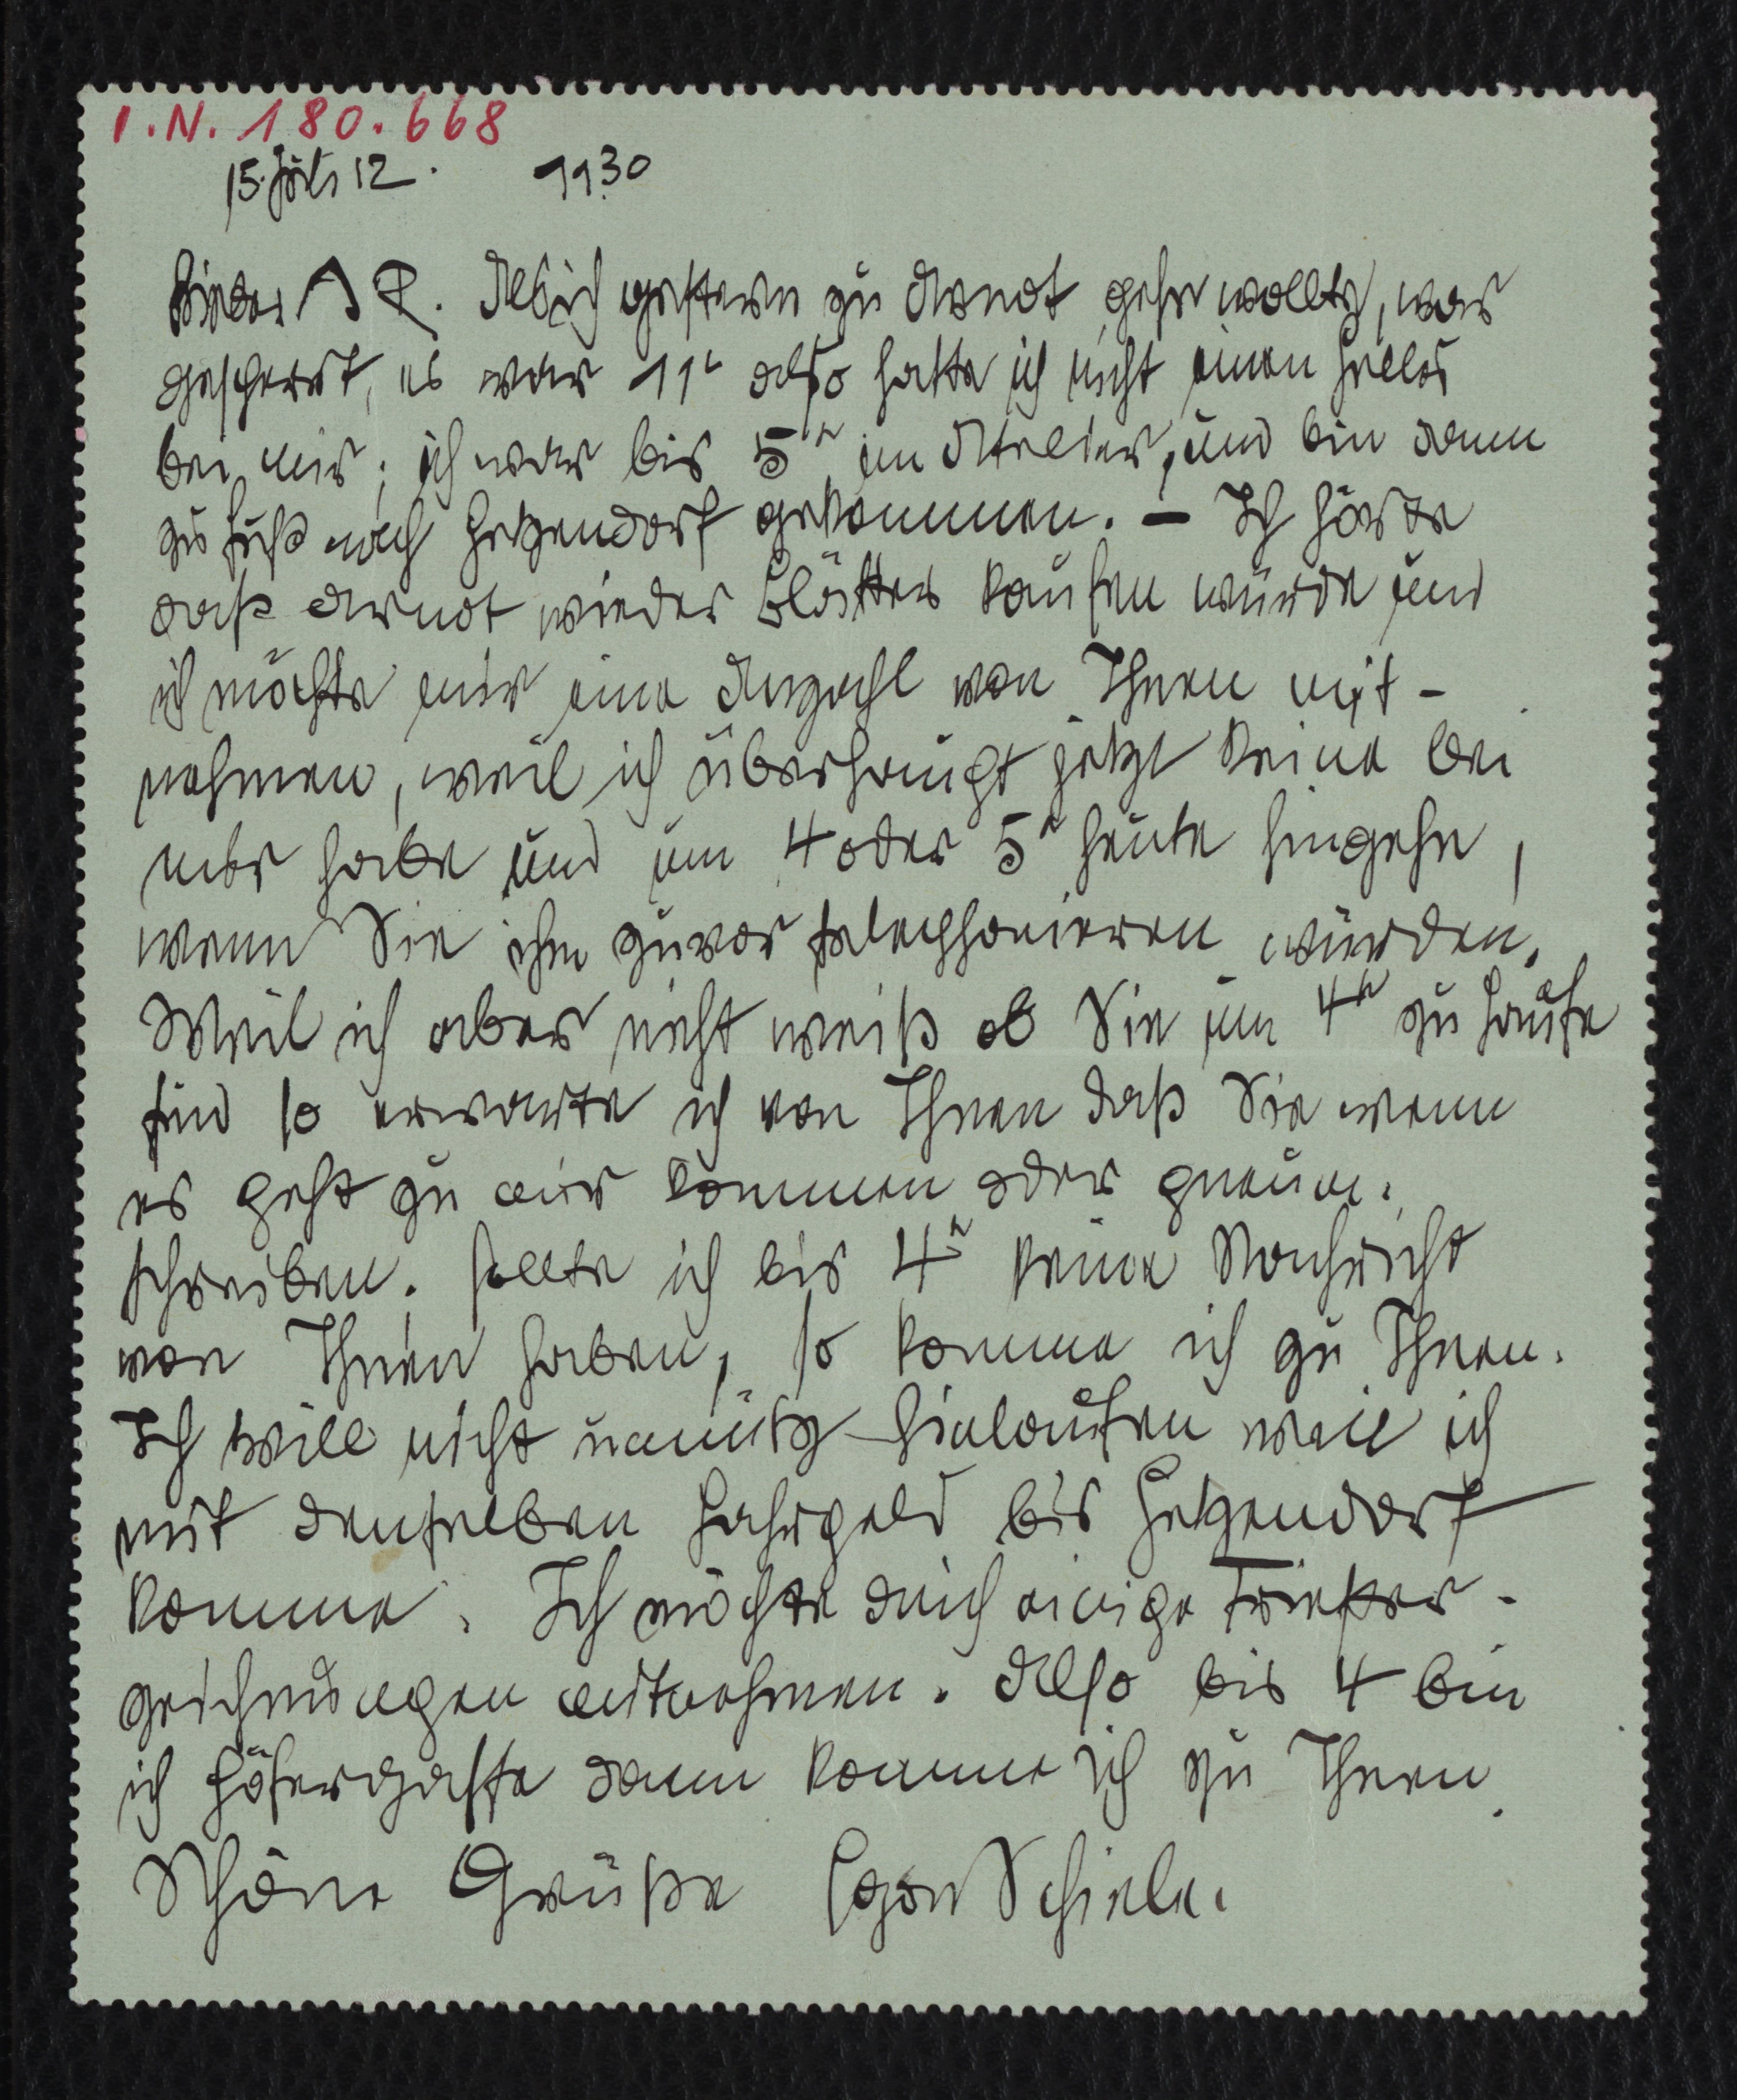 I.N. 180.668
15. Juli 12. 11.30
Lieber A R. Als ich gestern zu Arnot gehn wollte, war
gesperrt, es war 11h also hatte ich nicht einen Heller
bei mir; ich war bis 5h im Atelier, und bin dann
zu Fuß nach Hetzendorf gekommen. – Ich hörte
daß Arnot wieder Blätter kaufen würde und
ich möchte mir eine Anzahl von Ihnen mit-
nehmen, weil ich überhaupt jetzt keine bei
mir habe und um 4 oder 5h heute hingehn,
wenn Sie ihm zuvor telephonieren würden.
Weil ich aber nicht weiß ob Sie um 4h zu Hause
sind so erwarte ich von Ihnen daß Sie wenn
es geht zu mir kommen oder pneum.
schreiben. Sollte ich bis 4h keine Nachricht
von Ihnen haben, so komme ich zu Ihnen.
Ich will nicht unnütz hinlaufen weil ich
mit denselben Fahrgeld bis Hetzendorf
komme. Ich möchte auch einige Triester-
zeichnungen mitnehmen. Also bis 4 bin
ich Höfergasse dann komme ich zu Ihnen.
Schöne Grüße Egon Schiele.